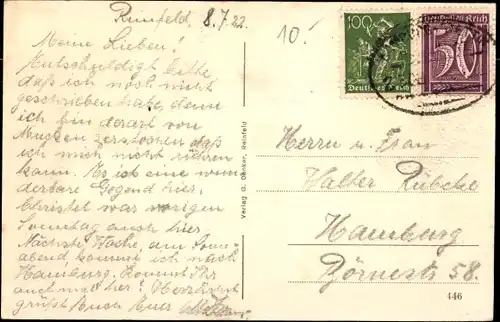 Reinfeld, 8.7.22.
10.
Meine Lieben!
Entschuldigt bitte
daß ich noch nicht
geschrieben habe, denn
ich bin derart von
Mucken zerstochen daß
ich mich nicht rühren
kann. Es ist eine wun
derbare Gegend hier,
war vorigen
Sonntag auch hier,
Nächste Woche, am Sonn
abend, kommt ich nach
Hamburg. Kommt Ihr
auch mal her? Herzlichst
grüßt Euch Euer
Verlag v. Reinfeld
100
Deutsches Reich
Deutsches Reich
50
Herrn u. Frau
Walter Rübcke
Hamburg
Börnestr 58.
446